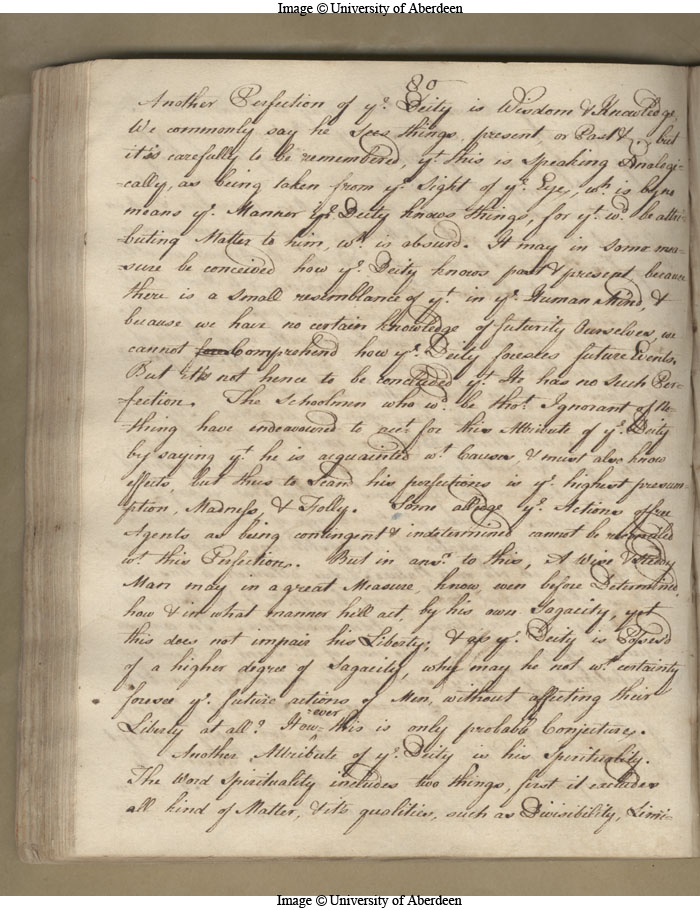 Image © University of Aberdeen
80
Another Perfection of yͤ. Deity is Wisdom & Knowledge,
We commonly say he sees things, present, or Past &c. but
it's carefully to be remembered, yͭ this is speaking Analogi-
-cally, as being taken from yͤ Sight of yͤ. Eye, wͪ. is by no
means yͤ. Manner yͤ. Deity knows things, for yͭ. wͩ. be attri-
buting Matter to him, wͪ. is absurd. It may in some mea-
sure be conceived how yͤ. Deity knows past & present because
there is a small resemblance of yͭ. in yͤ. Human Mind, &
because we have no certain knowledge of futurity Ourselves, we
cannot Comprehend how yͤ. Deity foresees future Events.
But it's not hence to be concluded yͭ. He has no such Per-
fection. The Schoolmen who wͩ. be thoͭ. Ignorant of No-
thing have endeavoured to accͭ. for this Attribute of yͤ. Deity
by saying yͭ. he is acquainted wͭ. Causes & must also know
effects, but thus to Scan his perfections is yͤ. highest presum-
ption, Madness, & Folly. Some alledge yͤ. Actions of free
Agents as being contingent & indetermined cannot be reconciled
wͭ. this Perfection. But in ansͬ. to this, A Wise &
Man may in a great Measure, know even before Determined,
how & in what manner hell act, by his own Sagacity, yet
this does not impair his Liberty; & as yͤ. Deity is Posses'd
of a higher degree of Sagacity, why may he not wͭ. certainty
foresee yͤ. future actions of Men, without affecting their
Liberty at all? However this is only probable Conjecture.
Another Attribute of yͤ. Deity is his Spirituality.
The Word Spirituality includes two things, first it excludes
all kind of Matter, & its qualities, such as Divisibility, Limi-
Image © University of Aberdeen